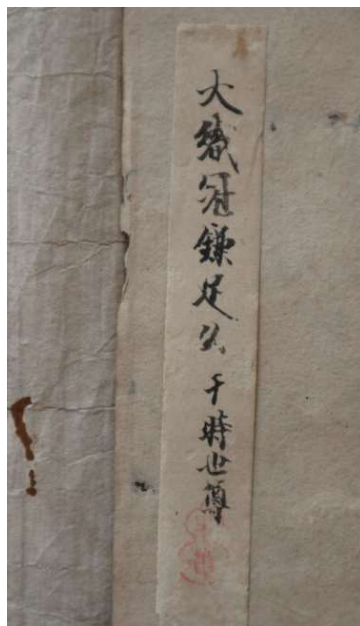 大織冠鎌足公 千時世尊